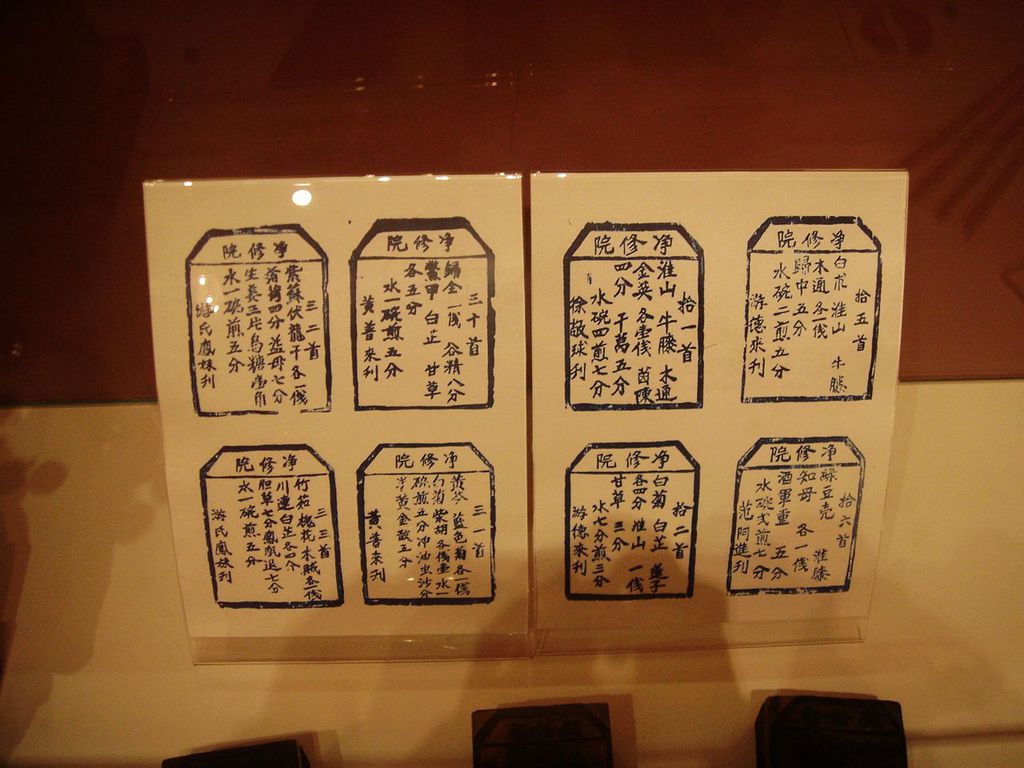 净修院
拾五首
白朮 淮山 牛膝
木通各一伐
歸中五分
水碗二煎五分
游德來刋
净修院
拾一首
淮山 牛膝 木通
金英各壹伐 茵陳
四分 干萬五分
水碗四煎七分
徐敬球刋
净修院
三十首
歸全一伐 谷精八分
鱉甲 白芷 甘草
各五分
水一碗煎五分
黃普來刋
净修院
三二首
紫蘇伏龍干各一伐
四分益母七分
生姜三片烏糖
水一碗煎五分
游氏鳳妹刋
净修院
拾六首
綠豆壳 淮膝
知母 各一伐
酒軍重 五分
水碗弍煎七分
范阿進刋
净修院
拾二首
白菊 白芷 蓮子
各四分 淮山 一伐
甘草 三分
水七分煎三分
游德來刋
净修院
三一首
黃芩 藍色菊各一伐
白菊柴胡各伐壹水一
碗煎五分冲油虫沙分
黃金散五分
黃普來刋
净修院
三三首
竹茹槐花木賊各一伐
川連白芷各四分
胆草七分鳳凰退七分
水一碗煎五分
游氏鳳妹刋